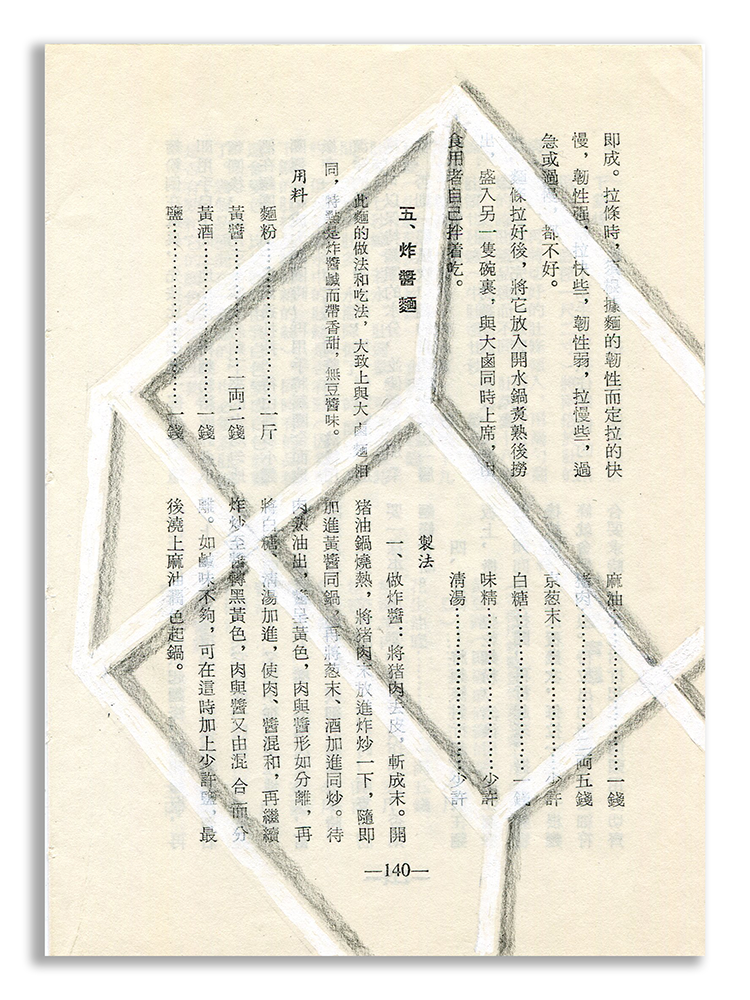 即成。拉條時,據麵的韌性而定拉的快
慢,韌性强,拉快些,韌性弱,拉慢些,過
急或過慢,都不好。
麵條拉好後,將它放入開水鍋煑熟後撈
出,盛入另一隻碗裏,與大鹵同時上席,由
食用者自己拌着吃。
五、炸醬麵
此麵的做法和吃法,大致上與大鹵麵相
同,特點是炸醬鹹而帶香甜,無豆醬味。
用料
麵粉…………………一斤
黃醬…………………一両二錢
黃酒…………………一錢
鹽……………………一錢
麻油…………………一錢
猪肉…………………二両五錢
京葱末………………少許
白糖…………………一錢
味精…………………少許
清湯…………………少許
製法
一、做炸醬:將猪肉去皮,斬成末。開
猪油鍋燒熱,將猪肉末放進炸炒一下,隨即
加進黃醬同鍋,再將葱末、酒加進同炒。待
肉熟油出,醬呈黃色,肉與醬形如分離,再
將白糖、清湯加進,使肉、醬混和,再繼續
炸炒至醬轉黑黃色,肉與醬又由混合而分
離。如鹹味不夠,可在這時加上少許鹽,最
後澆上麻油,色起鍋。
—140—